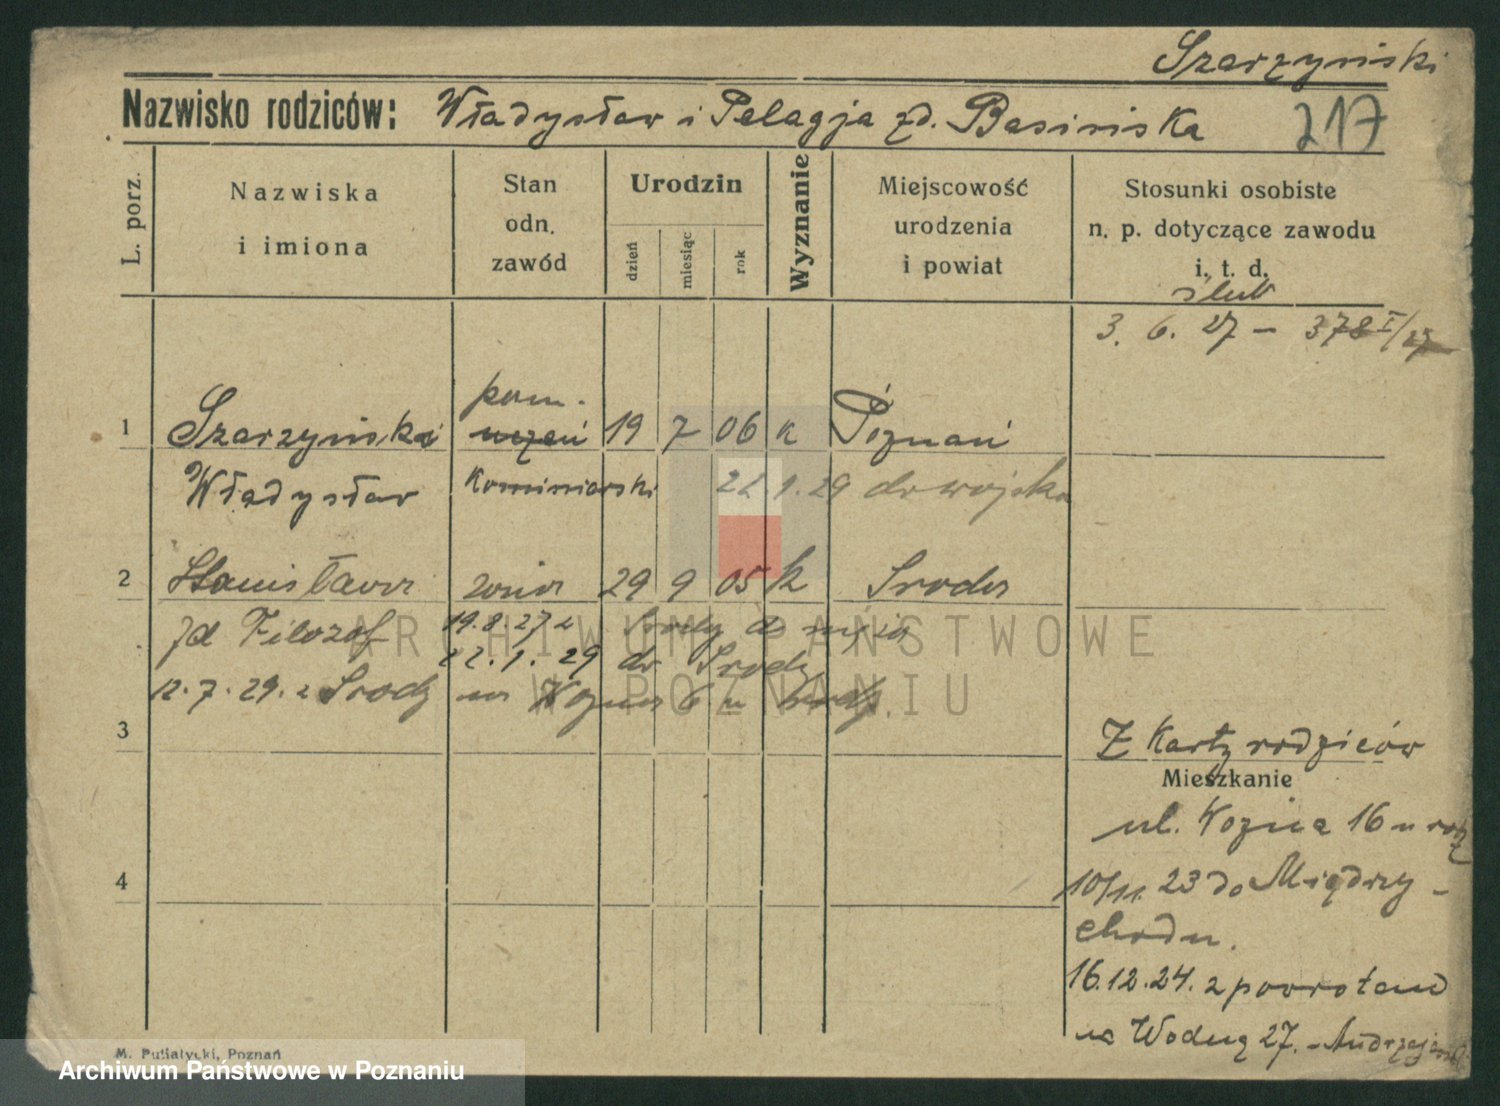 Szarzyński
Nazwisko rodziców: Władysław i Pelagja zd. Basińska 217
L. porz.
Nazwiska
i imiona
Stan
odn.
zawód
Urodzin
dzień
miesiąc
rok
Wyznanie
Miejscowość
urodzenia
i powiat
Stosunki osobiste
n. p. dotyczące zawodu
i. t. d.
ślub
3. 6. 27 – 378 I/27
pom.
1 Szarzyński uczeń 19 7 06 k Poznań
Władysław kominiarski 22.1.29 do wojska
2 Stanisława żona 29 9 05 k Środa
zd Filozof 19.8.27 z Środy do męża
22.1.29 do Środy
12.7.29 z Środy na Woźna 6 u
3
Z karty rodziców
Mieszkanie
ul. Woźna 16 u rodz
4
10/11. 23 do Między-
chodu.
16.12.24. z powrotem
na Wodną 27. –
M. Putiatycki, Poznań
ARCHIWUM PAŃSTWOWE
W POZNANIU
Archiwum Państwowe w Poznaniu